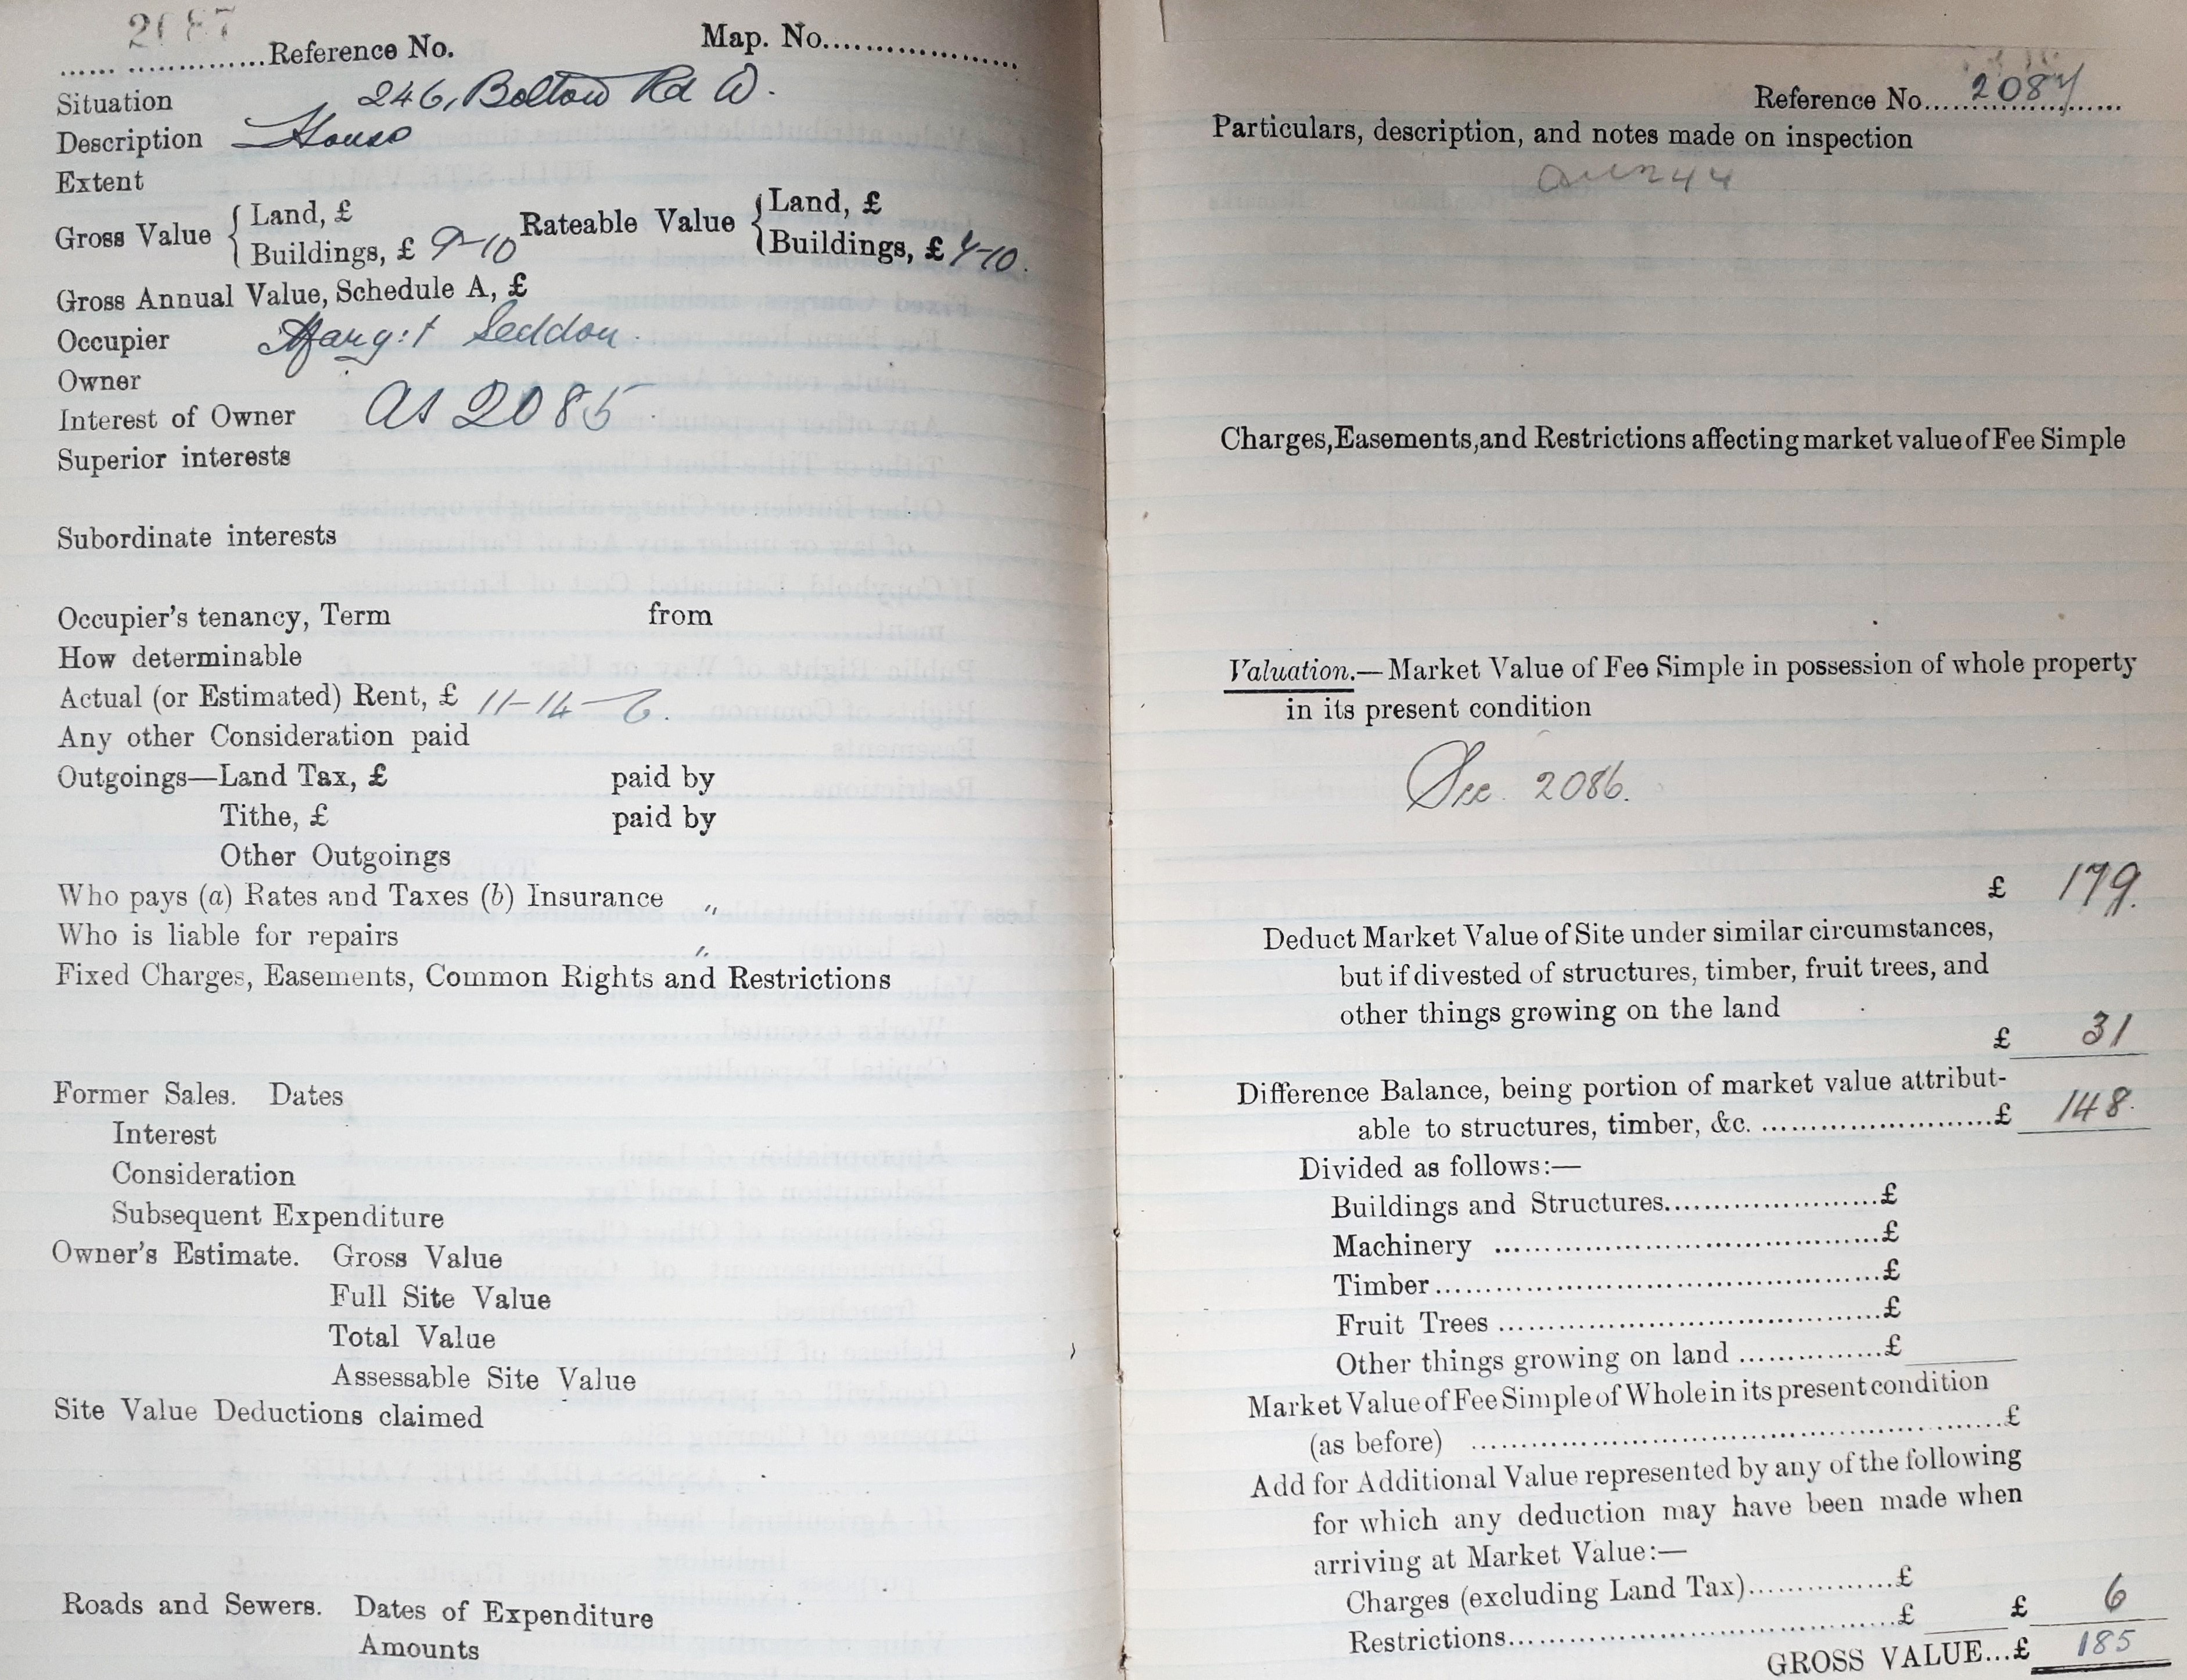 2087
...... ..............Reference No. Map. No.....................
Situation 246, Bolton Rd W.
Description House
Extent
Gross Value { Land, £
Buildings, £ 9-10
Rateable Value { Land, £
Buildings, £ 7-10.
Gross Annual Value, Schedule A, £
Occupier Margt Seddon
Owner
Interest of Owner As 2085
Superior interests
Subordinate interests
Occupier's tenancy, Term from
How determinable
Actual (or Estimated) Rent, £ 11-14-6.
Any other Consideration paid
Outgoings—Land Tax, £ paid by
Tithe, £ paid by
Other Outgoings
Who pays (a) Rates and Taxes (b) Insurance "
Who is liable for repairs "
Fixed Charges, Easements, Common Rights and Restrictions
Former Sales. Dates
Interest
Consideration
Subsequent Expenditure
Owner's Estimate. Gross Value
Full Site Value
Total Value
Assessable Site Value
Site Value Deductions claimed
Roads and Sewers. Dates of Expenditure
Amounts
Reference No.....2087.....
Particulars, description, and notes made on inspection
244
Charges, Easements, and Restrictions affecting market value of Fee Simple
Valuation.—Market Value of Fee Simple in possession of whole property
in its present condition
See 2086.
£ 179.
Deduct Market Value of Site under similar circumstances,
but if divested of structures, timber, fruit trees, and
other things growing on the land
£ 31
Difference Balance, being portion of market value attribut-
able to structures, timber, &c. ........................£ 148.
Divided as follows:—
Buildings and Structures......................£
Machinery .......................................£
Timber.............................................£
Fruit Trees ......................................£
Other things growing on land ...............£
Market Value of Fee Simple of Whole in its present condition
(as before) .......................................................£
Add for Additional Value represented by any of the following
for which any deduction may have been made when
arriving at Market Value:—
Charges (excluding Land Tax)...............£
Restrictions.......................................£ £ 6
GROSS VALUE...£ 185